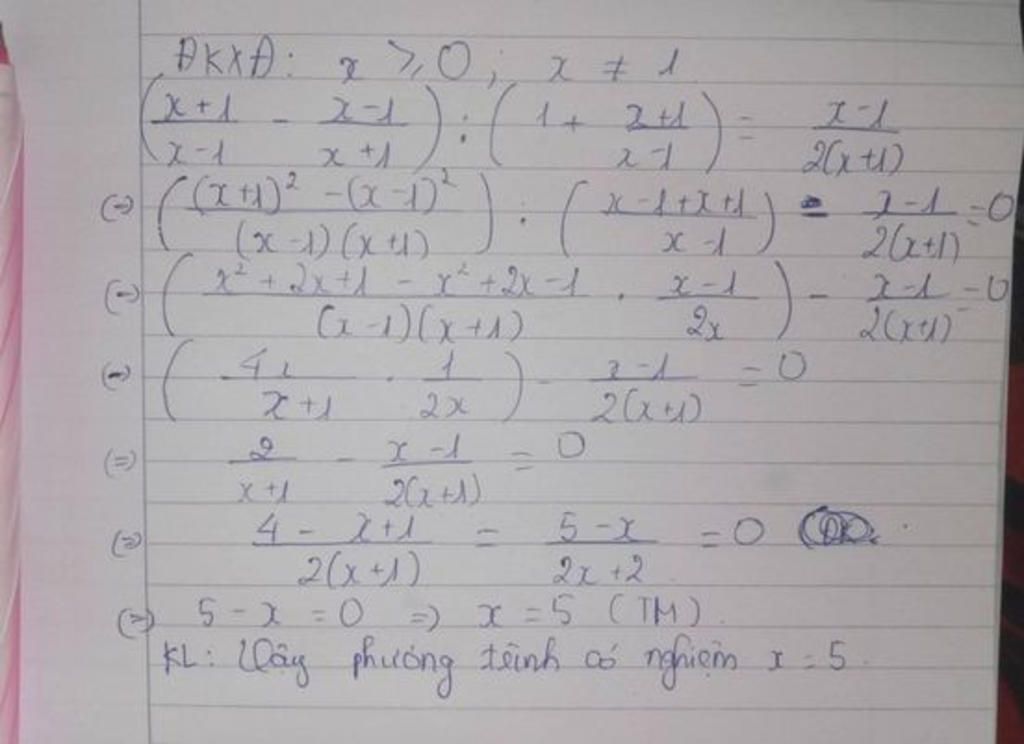 ĐKXĐ: x ⩾ 0; x ≠ 1
((x+1)/(x-1) - (x-1)/(x+1)) : (1 + (x+1)/(x-1)) = (x-1)/(2(x+1))
(=) (((x+1)² - (x-1)²)/((x-1)(x+1))) : ((x-1+x+1)/(x-1)) - (x-1)/(2(x+1)) = 0
(=) ((x² + 2x+1 - x² + 2x - 1)/((x-1)(x+1)) . (x-1)/(2x)) - (x-1)/(2(x+1)) = 0
(=) ((4x)/(x+1) . 1/(2x)) - (x-1)/(2(x+1)) = 0
(=) 2/(x+1) - (x-1)/(2(x+1)) = 0
(=) (4 - x+1)/(2(x+1)) = (5-x)/(2x+2) = 0
(=) 5 - x = 0 =) x = 5 (TM).
KL: Vậy phương trình có nghiệm x = 5.